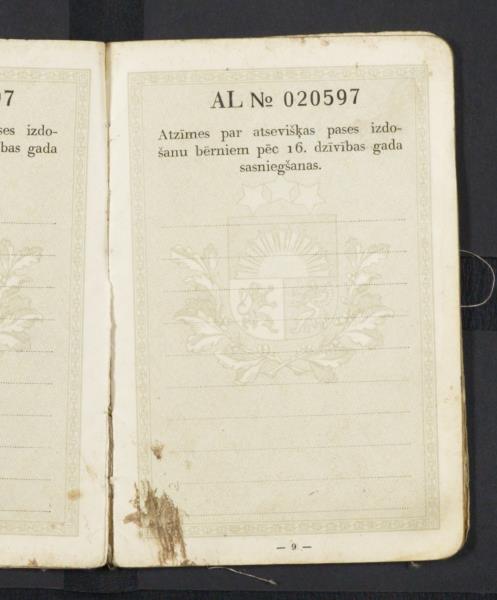 97
ses izdo-
bas gada
AL № 020597
Atzīmes par atsevišķas pases izdo-
šanu bērniem pēc 16. dzīvības gada
sasniegšanas.
— 9 —